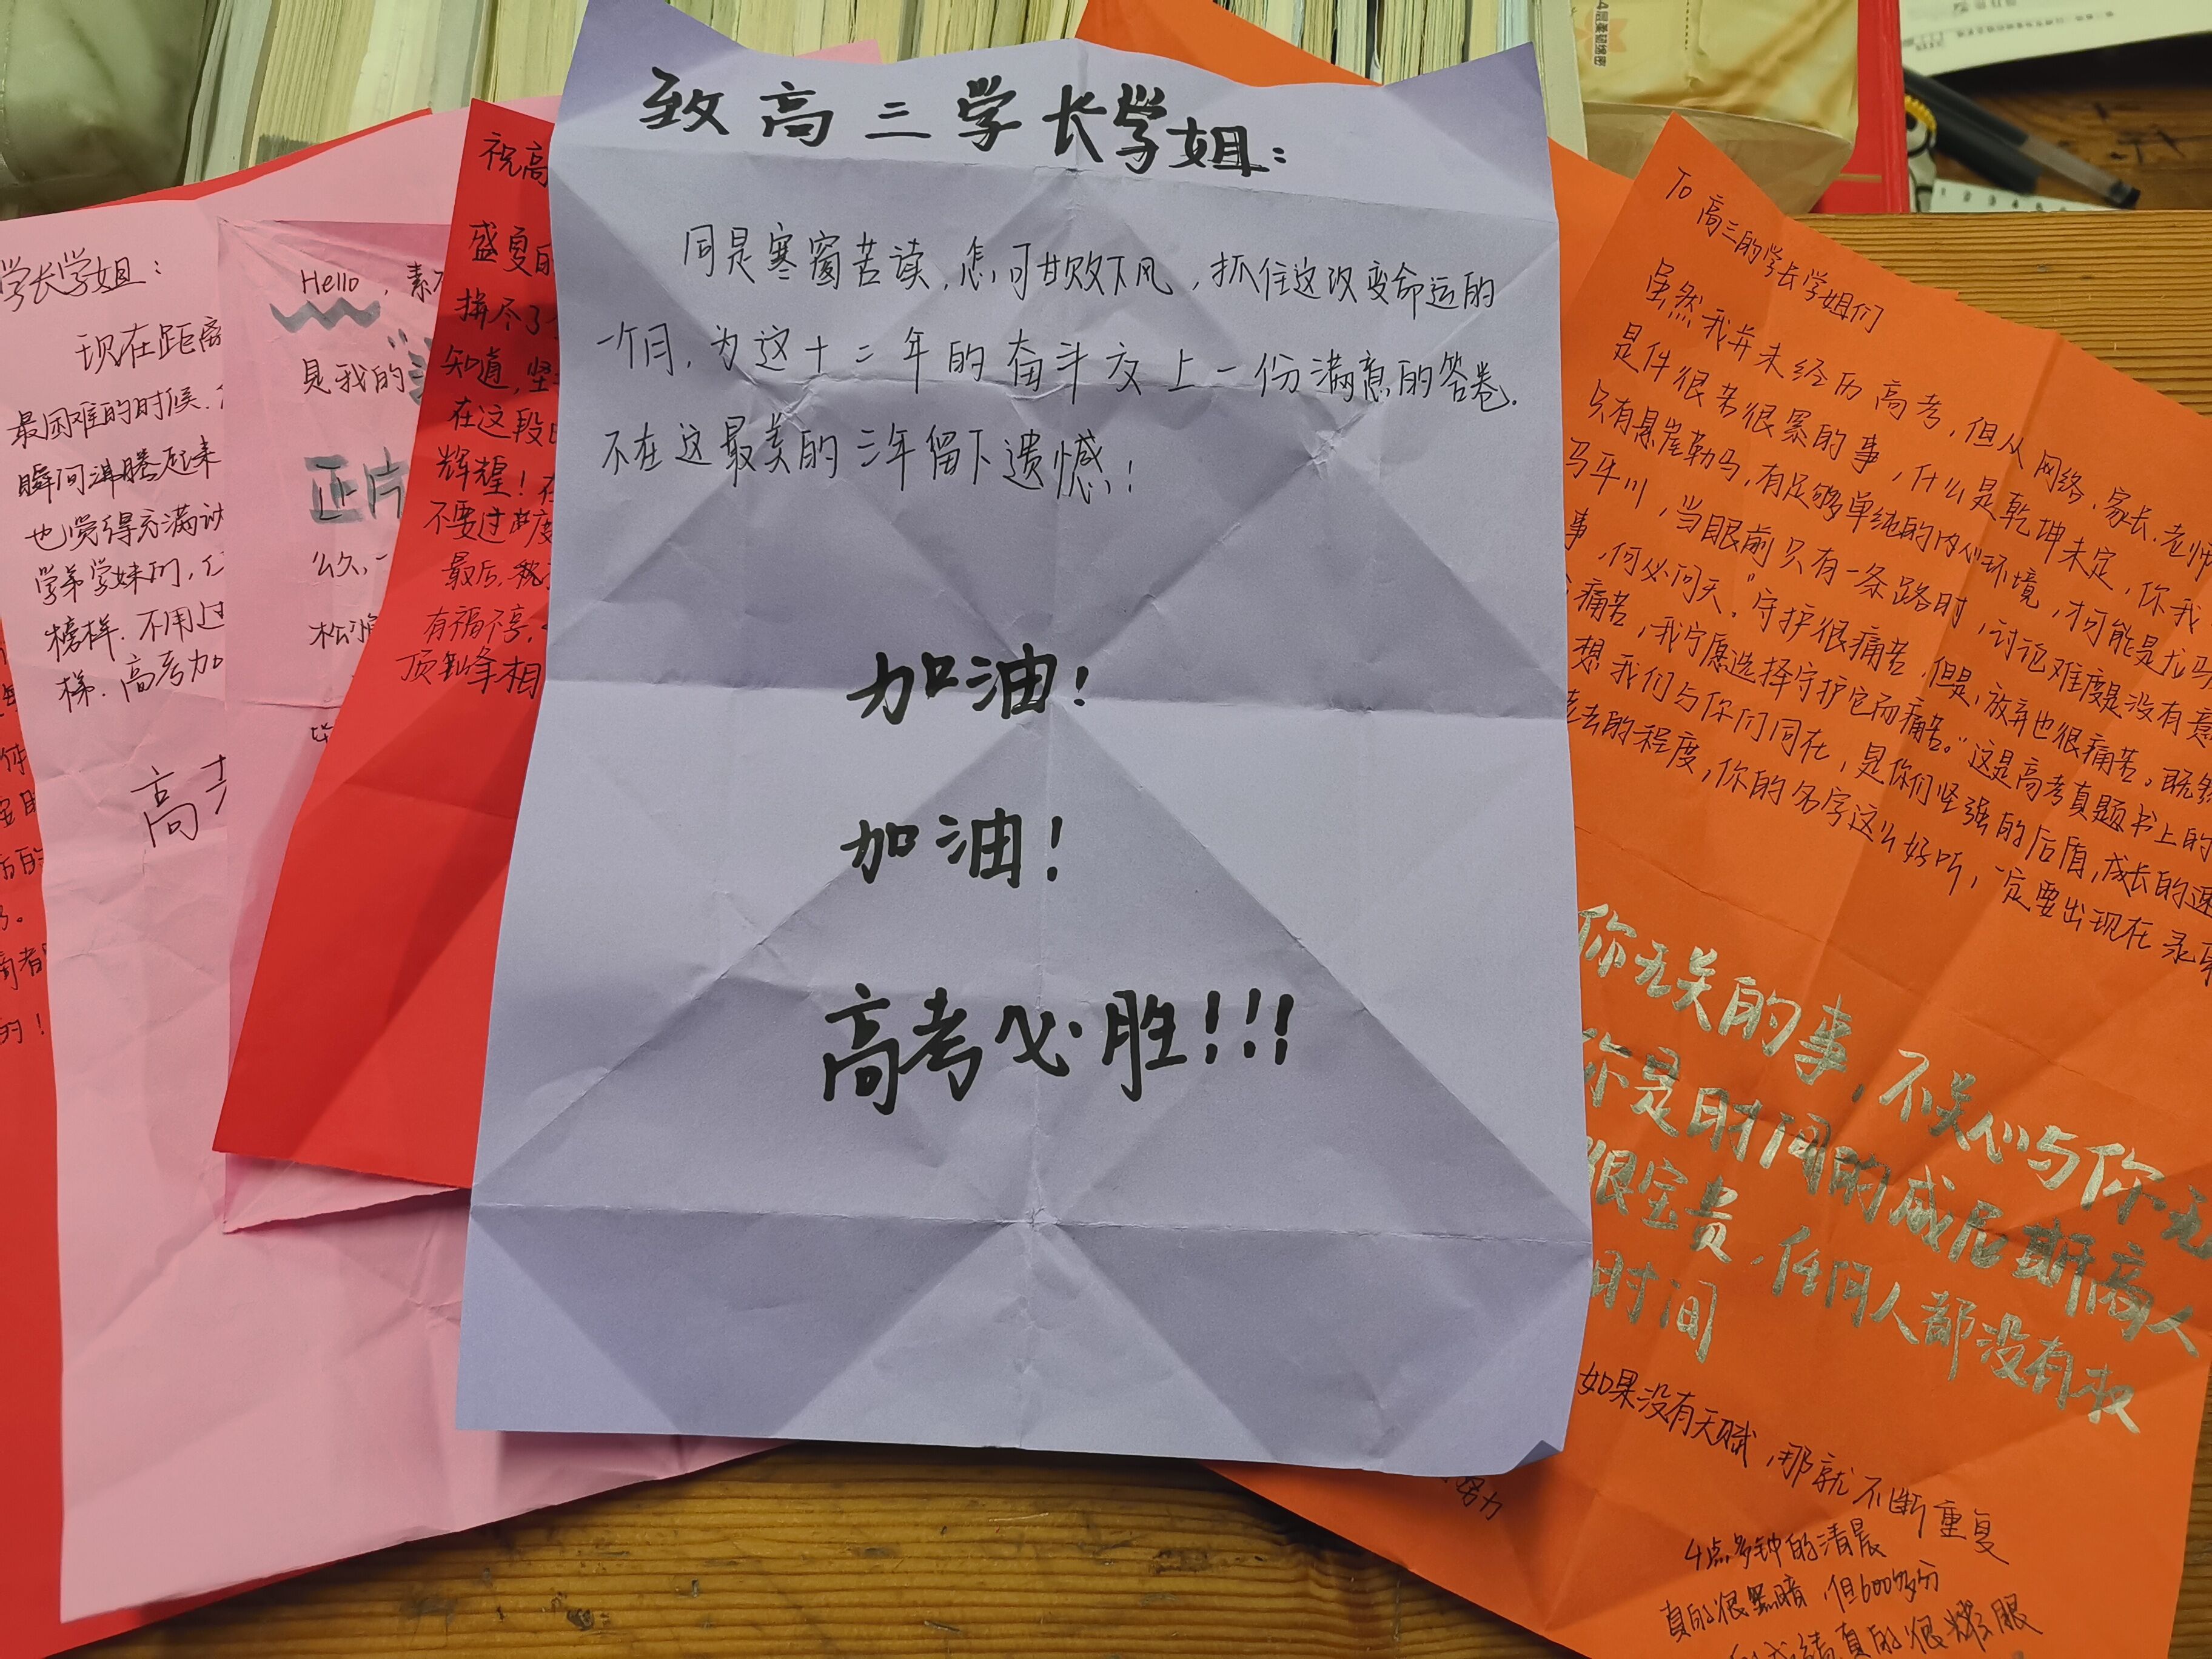 致高三学长学姐：
同是寒窗苦读，怎可甘败下风，抓住这改变命运的
一个月，为这十二年的奋斗交上一份满意的答卷.
不在这最美的三年留下遗憾！
加油！
加油！
高考必胜!!!
学长学姐：
现在距离
最困难的时候.
瞬间沸腾起来
也觉得充满
学弟学妹们，
榜样. 不用过
样. 高考加
高考
Hello，素
是我的
正片
么久，一
松
毕
祝高
盛夏的
拼尽了
知道，坚
在这段
辉煌！在
不要过度
最后，祝
有福不享，
顶峰相
的！
To 高三的学长学姐们
虽然我并未经历高考，但从网络、家长、老师
是件很苦很累的事，什么是乾坤未定，你我
只有悬崖勒马，有足够单纯的内心环境，才可能是尤马
马平川，当眼前只有一条路时，讨论难度是没有意
事，何必问天。”守护很痛苦，但是，放弃也很痛苦。既然
痛苦，我宁愿选择守护它而痛苦。“这是高考真题书上的
想我们与你们同在，是你们坚强的后盾，成长的速
去的程度，你的名字这么好听，一定要出现在录取
你无关的事，不关心与你无
你是时间的减后期商人
很宝贵，任何人都没有权
时间
如果没有天赋，那就不断重复
4点多钟的清晨
真的很黑暗，但600多分
成绩真的很耀眼
努力